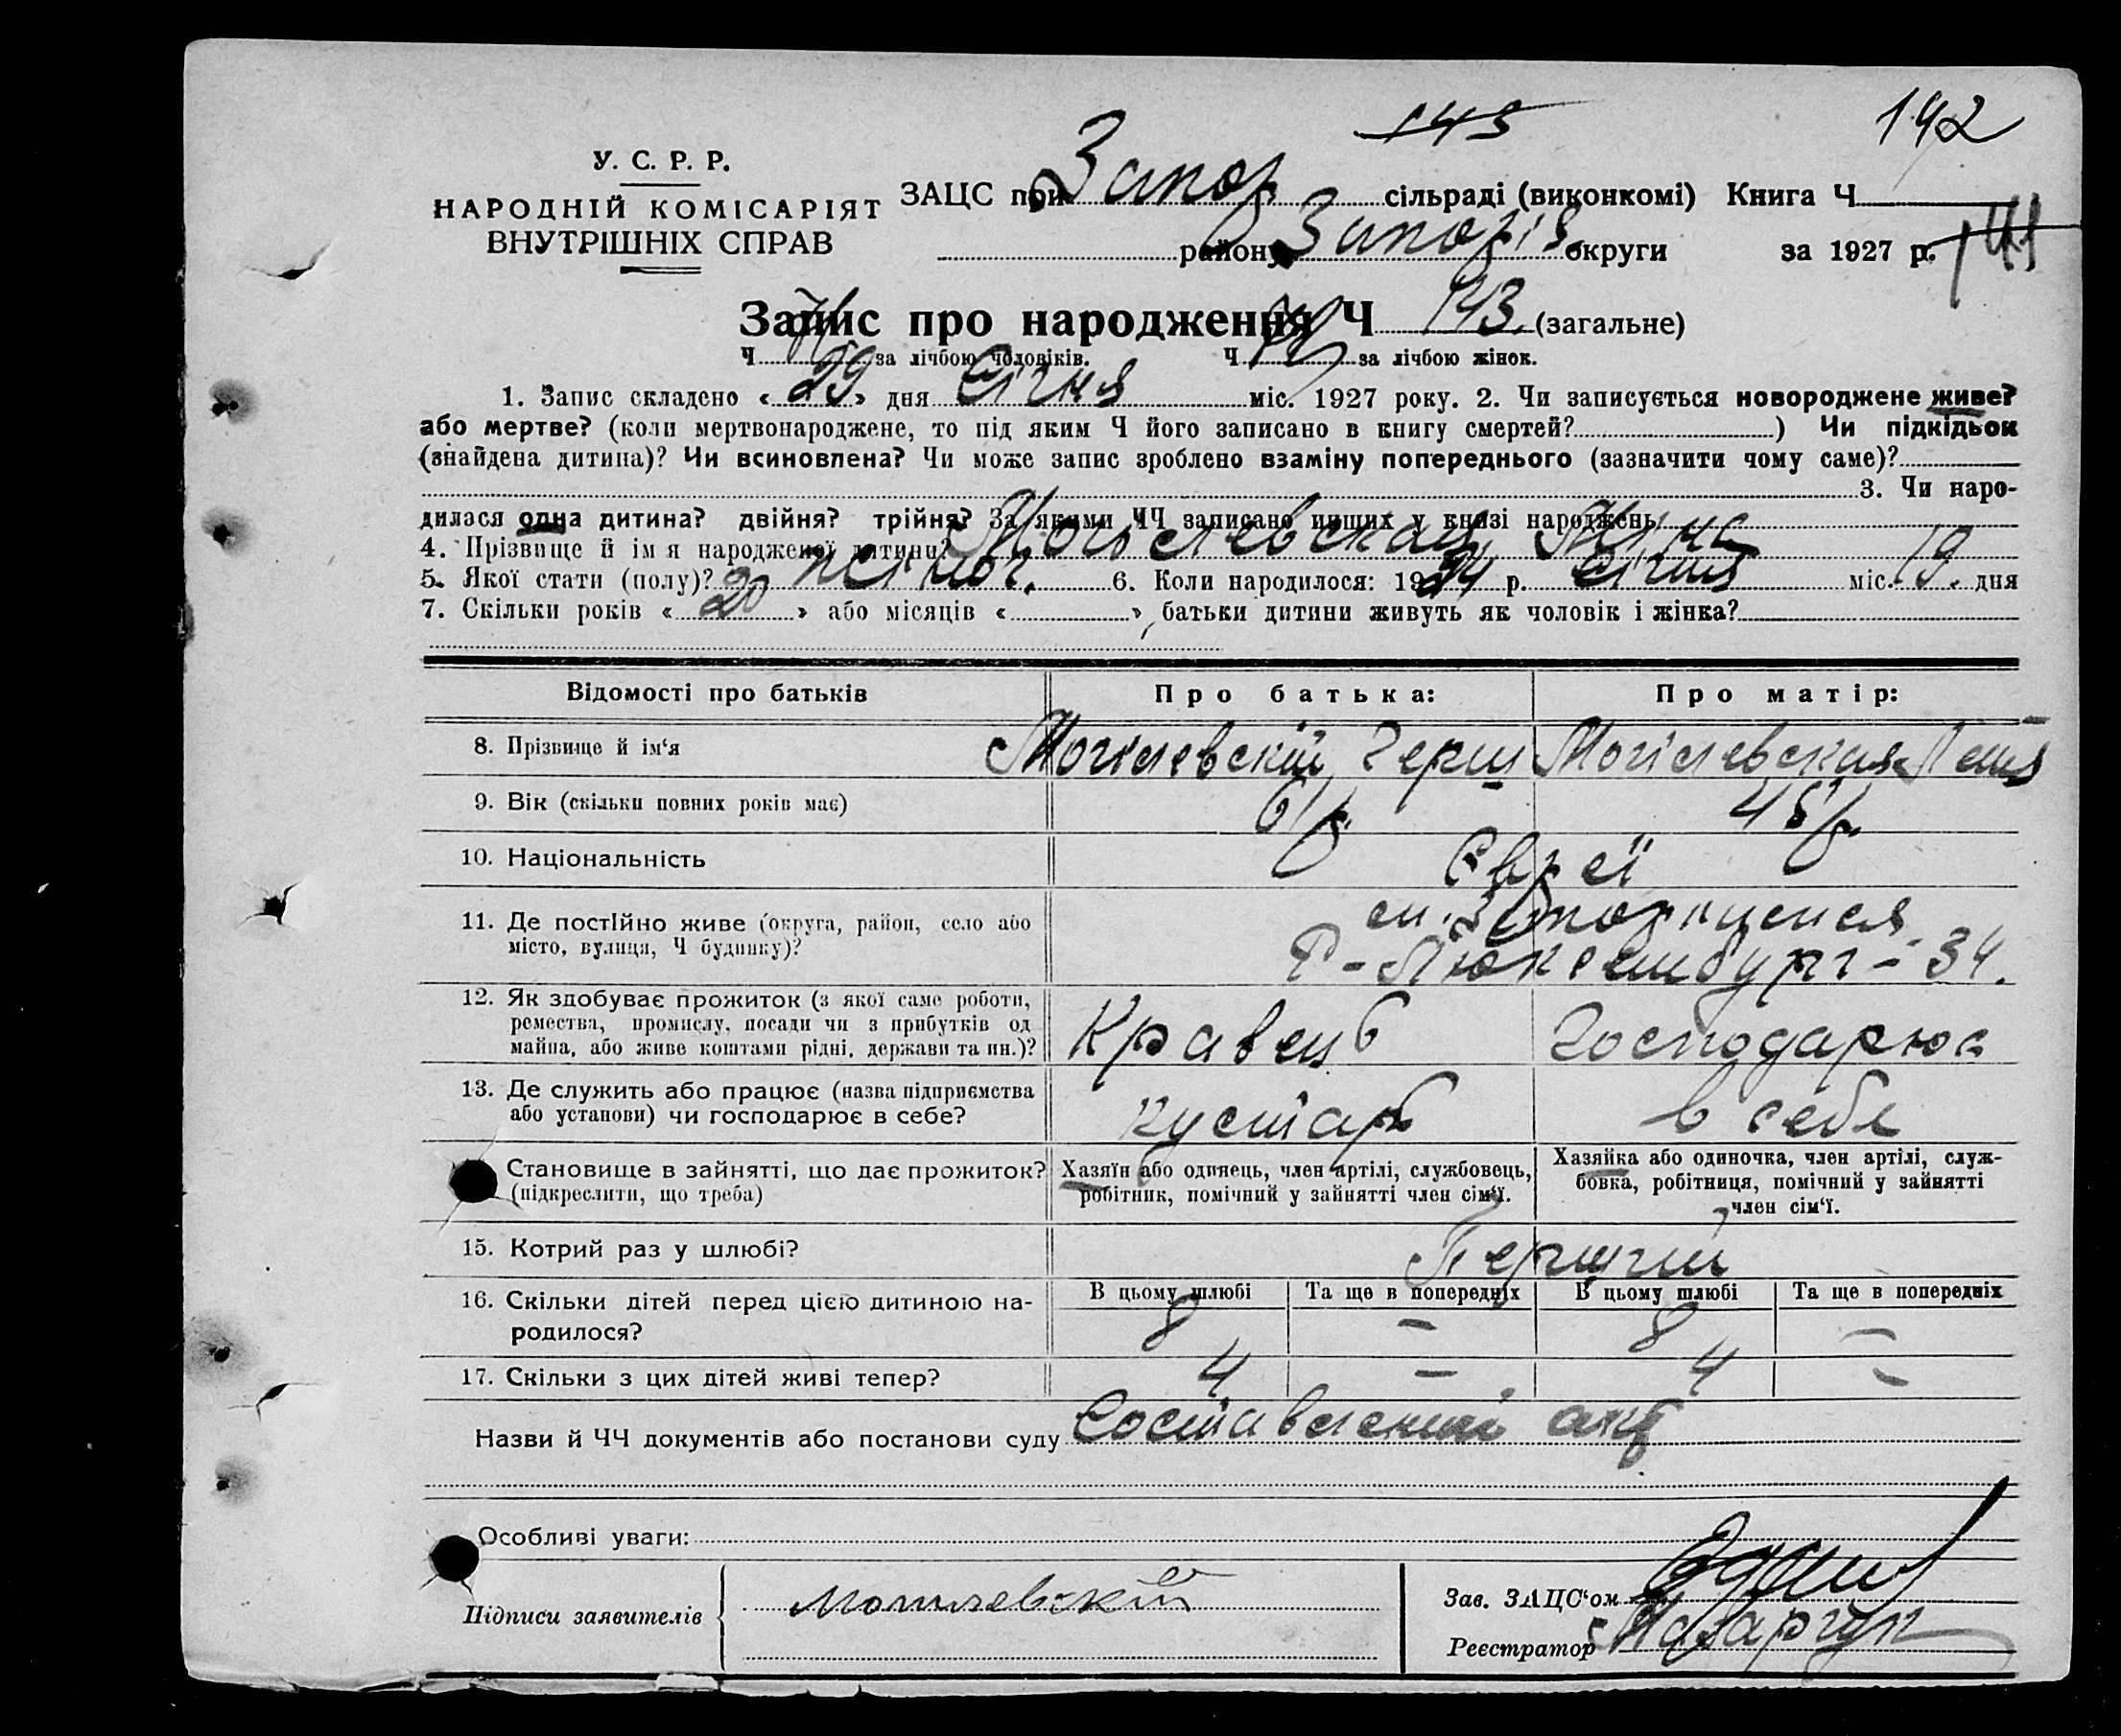 145
192
У. С. Р. Р.
НАРОДНІЙ КОМІСАРІЯТ
ВНУТРІШНІХ СПРАВ
ЗАЦС при Запор. сільраді (виконкомі) Книга Ч
району Запоріз. округи за 1927 р.
Запис про народження Ч 143. (загальне)
Ч за лічбою чоловіків. Ч за лічбою жінок.
1. Запис складено « 29 » дня Січня міс. 1927 року. 2. Чи записується новороджене живе?
або мертве? (коли мертвонароджене, то під яким Ч його записано в книгу смертей? ) Чи підкідьок
(знайдена дитина)? Чи всиновлена? Чи може запис зроблено взаміну попереднього (зазначити чому саме)?
3. Чи наро-
дилася одна дитина? двійня? трійня? За якими ЧЧ записано инших у книзі народжень
4. Прізвище й ім я народженої дитини? Могілевская
5. Якої стати (полу)? жіноч. 6. Коли народилося: 19 р. Січня міс. 19. дня
7. Скільки років « 20 » або місяців « », батьки дитини живуть як чоловік і жінка?
Відомості про батьків Про батька: Про матір:
8. Прізвище й ім'я Могілевскій Герш Могілевская
9. Вік (скільки повних років має) 61 р. 45 р.
10. Національність Євреї
11. Де постійно живе (округа, район, село або
місто, вулиця, Ч будинку)?
Р-Люксембург - 34.
12. Як здобуває прожиток (з якої саме роботи,
ремества, промислу, посади чи з прибутків од
майна, або живе коштами рідні, держави та ин.)?
Кравець Господарює
13. Де служить або працює (назва підприємства
або установи) чи господарює в себе?
кустарь в себе
Становище в зайнятті, що дає прожиток?
(підкреслити, що треба)
Хазяїн або одинець, член артілі, службовець,
робітник, помічний у зайнятті член сім'ї.
Хазяйка або одиночка, член артілі, служ-
бовка, робітниця, помічний у зайнятті
член сім'ї.
15. Котрий раз у шлюбі? Перший
16. Скільки дітей перед цією дитиною на-
родилося?
В цьому шлюбі Та ще в попередніх В цьому шлюбі Та ще в попередніх
8 - 8 -
17. Скільки з цих дітей живі тепер? 4 - 4 -
Назви й ЧЧ документів або постанови суду Составлений акт
Особливі уваги:
Підписи заявителів Могилевский
Зав. ЗАЦС'ом
Реєстратор